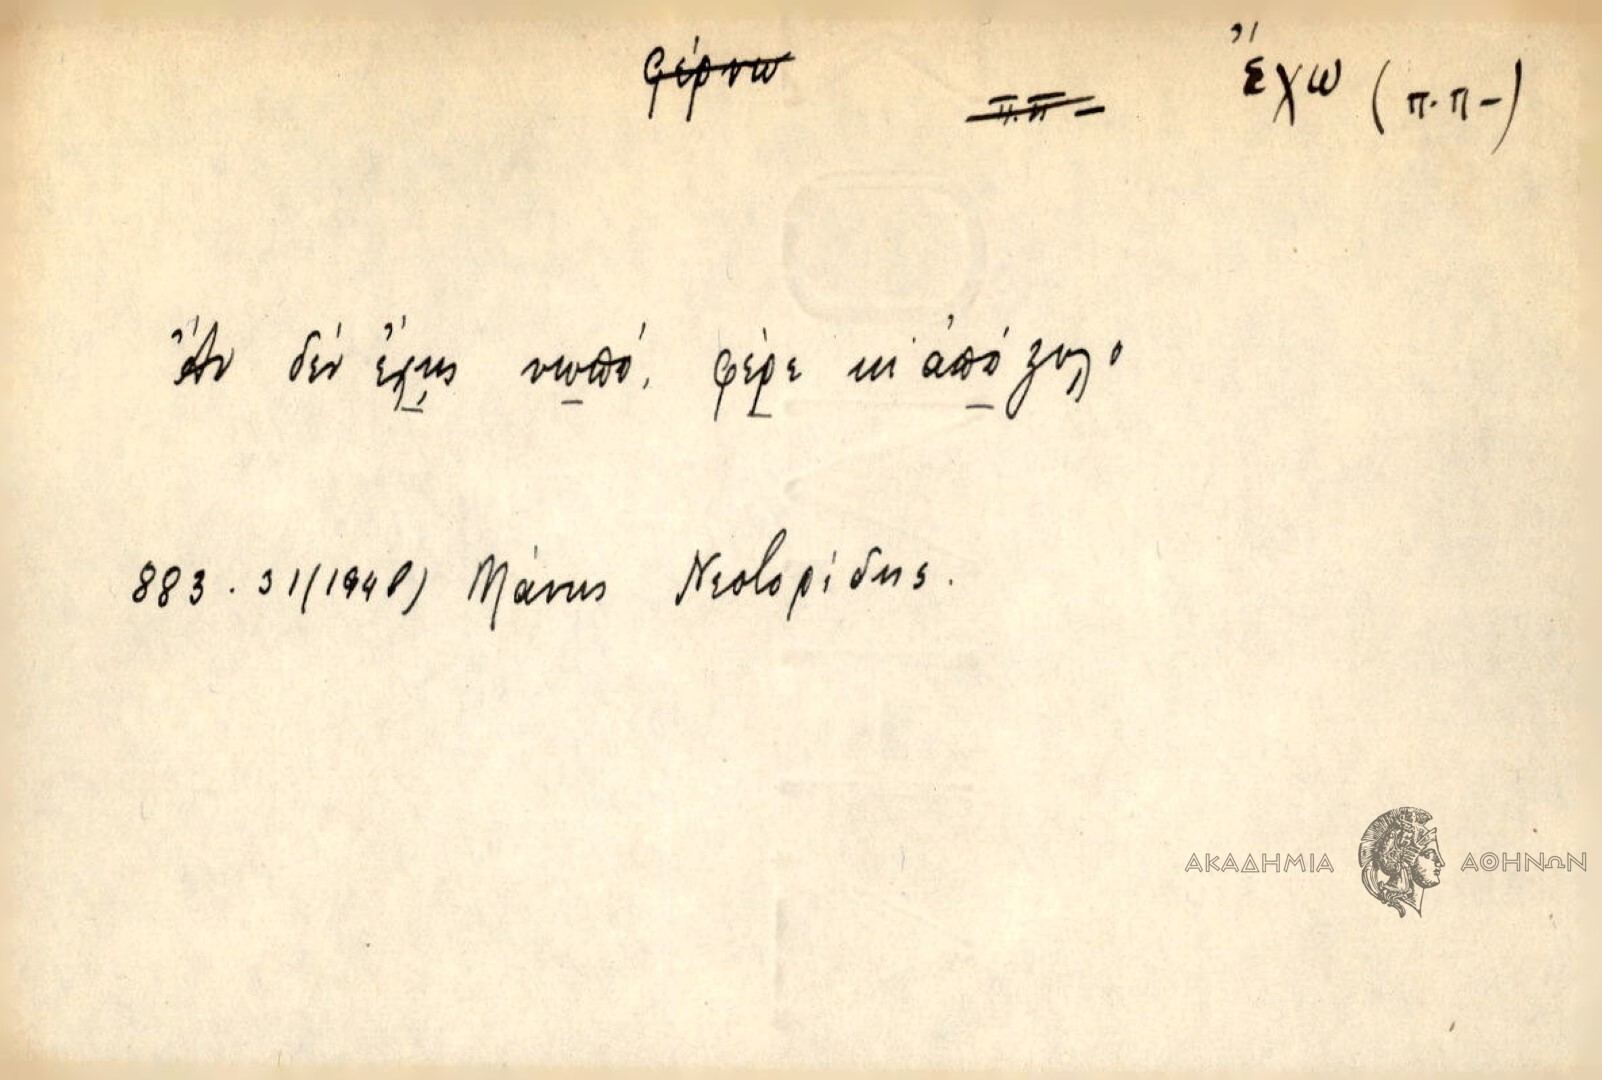 φέρνω π.π- ἔχω (π.π-)
Ἄν δέν ἔχῃς νωπό, φέρε κι ἀπό
883.31(1948) Μάνης Νεστορίδης.
ΑΚΑΔΗΜΙΑ ΑΘΗΝΩΝ